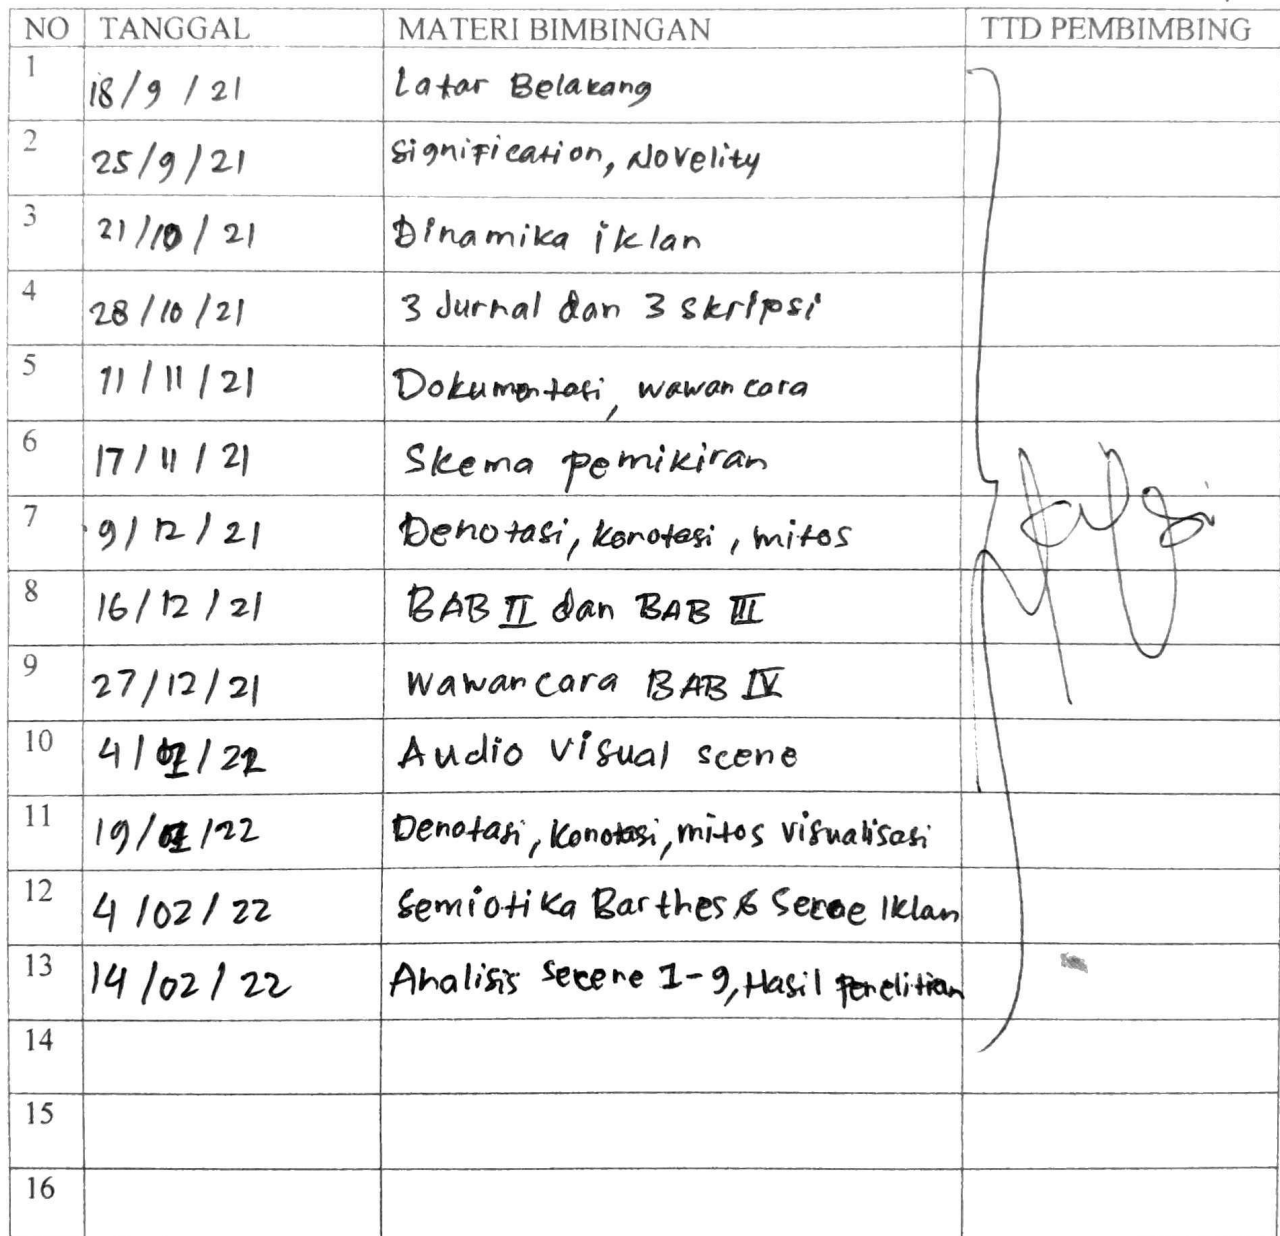 NO TANGGAL MATERI BIMBINGAN TTD PEMBIMBING
1 18/9/21 Latar Belakang
2 25/9/21 Signification, Novelity
3 21/10/21 Dinamika iklan
4 28/10/21 3 Jurnal dan 3 skripsi
5 11/11/21 Dokumentasi, wawancara
6 17/11/21 Skema pemikiran
7 9/12/21 Denotasi, konotasi, mitos
8 16/12/21 BAB II dan BAB III
9 27/12/21 wawancara BAB IV
10 4/01/22 Audio visual scene
11 19/01/22 Denotasi, Konotasi, mitos visualisasi
12 4/02/22 Semiotika Barthes 6 Iklan
13 14/02/22 Analisis secene 1-9, Hasil Penelitian
14
15
16